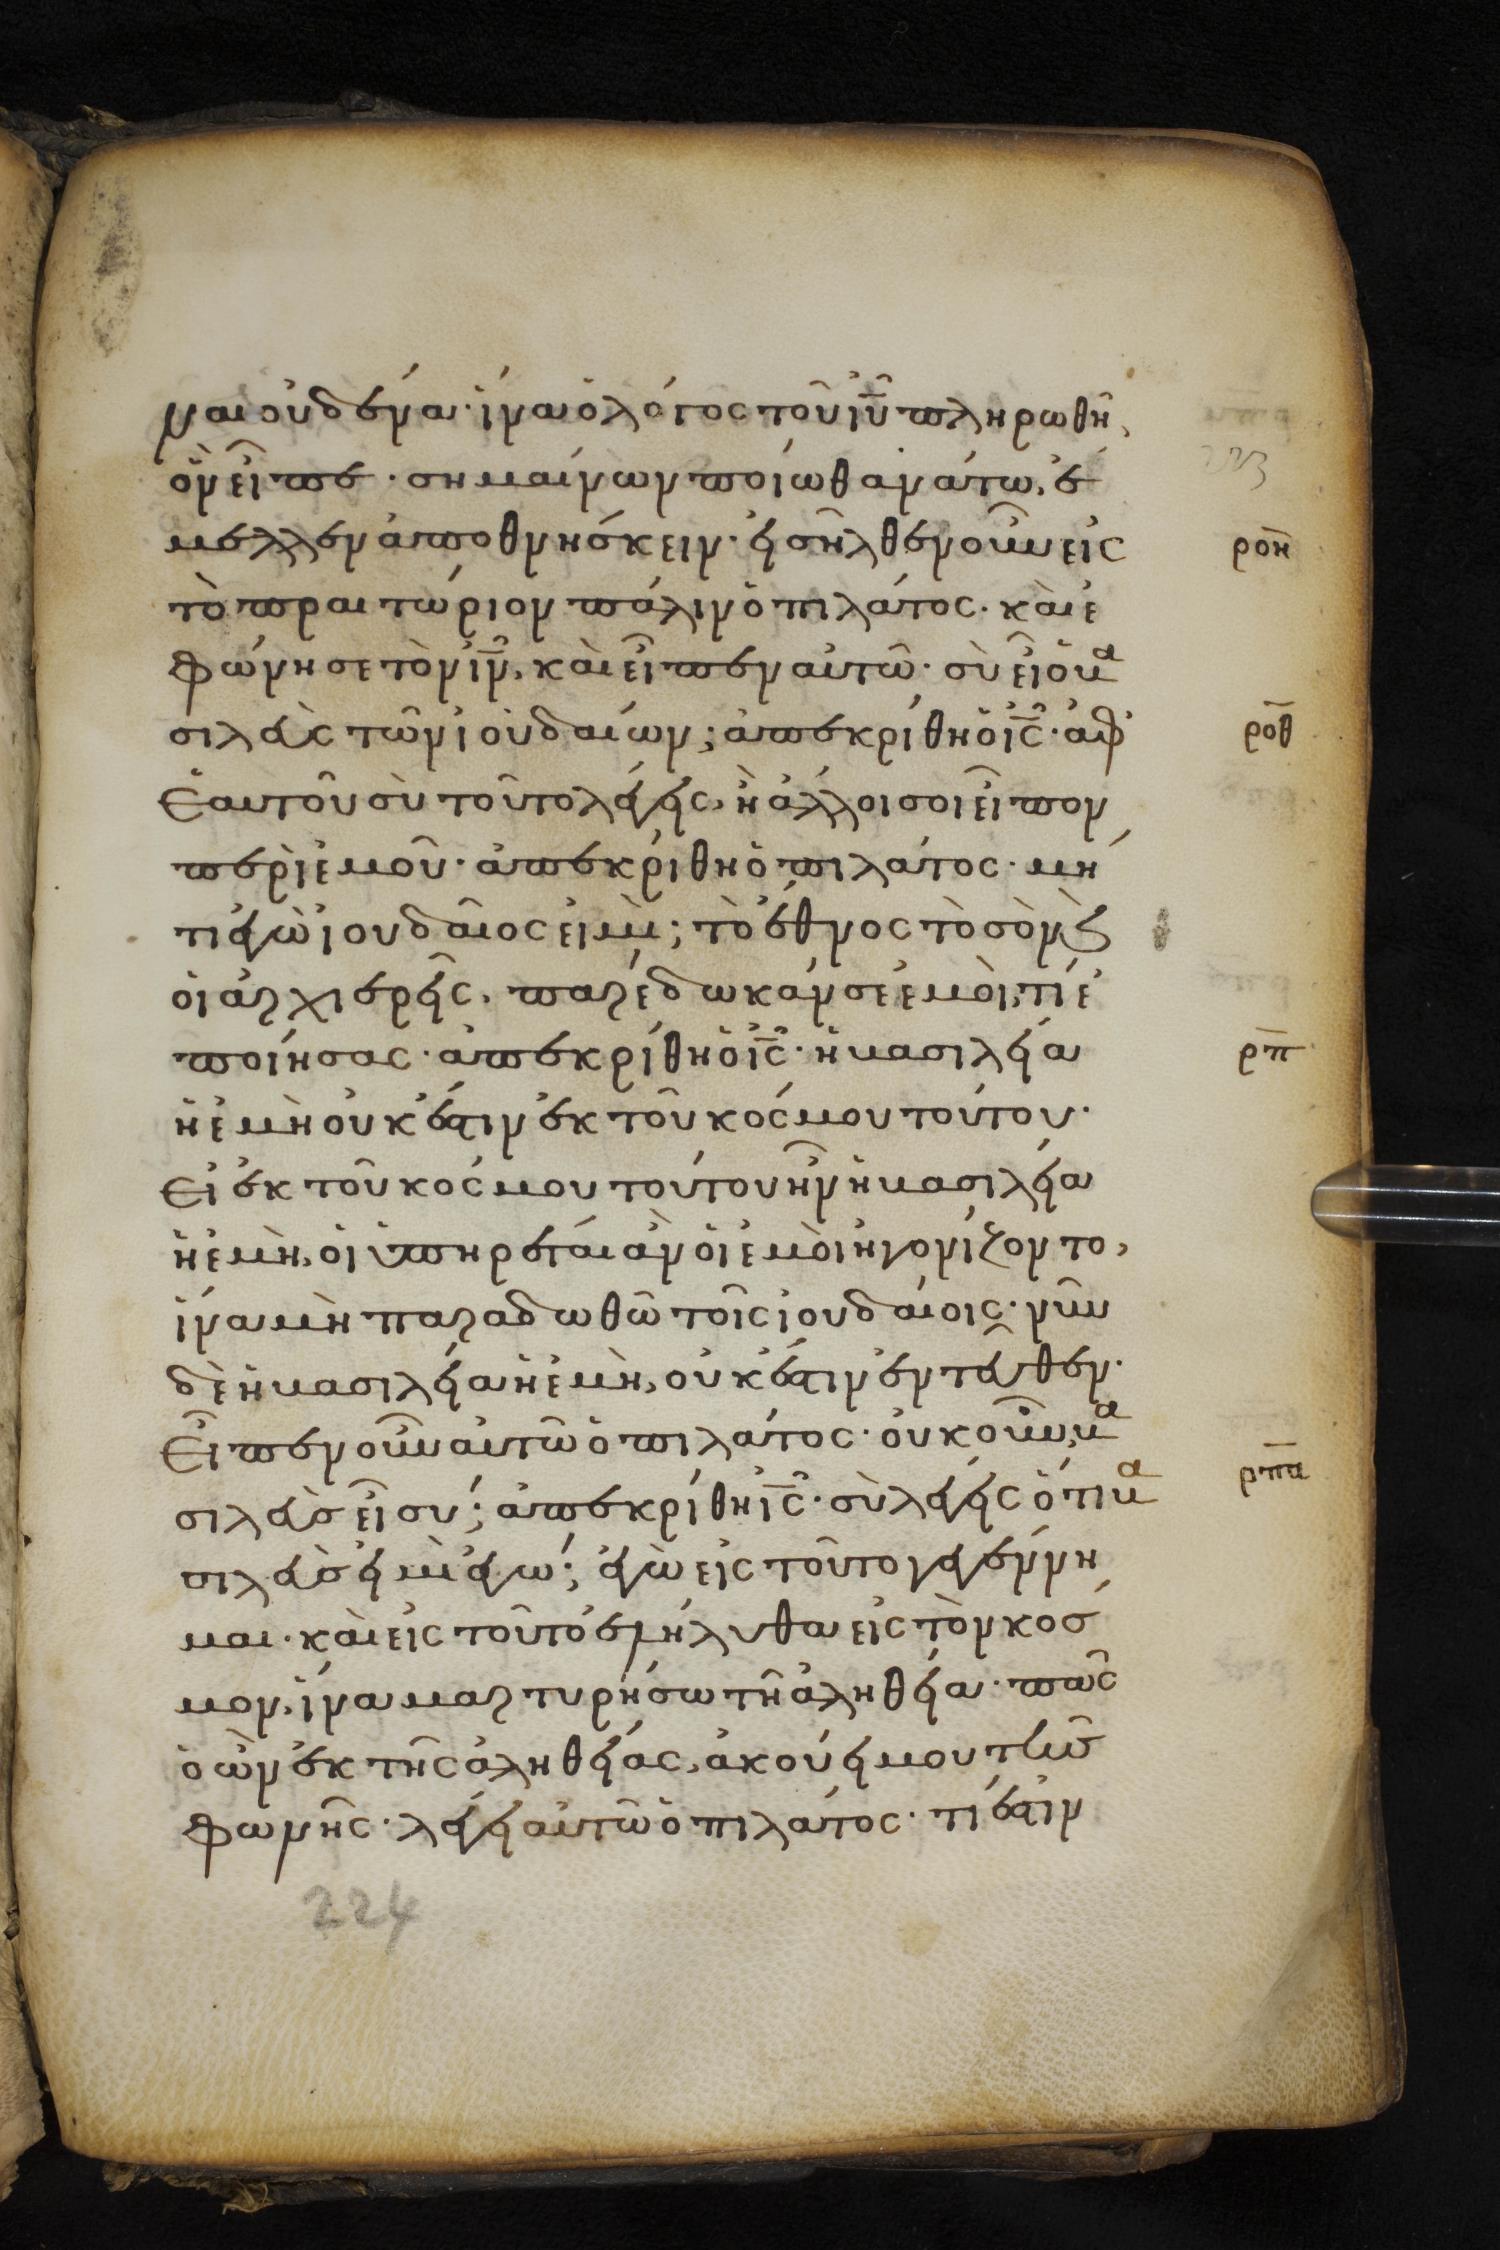 ναι οὐδένα· ἵνα ὁ λόγος τοῦ ἰῦ πληρωθῆ,
ὃν εἶπε· σημαίνων ποίω θανάτω, ἔ
μελλεν ἀποθνήσκειν· εἰσῆλθεν οὖν εἰς
ροη
τὸ πραιτώριον πάλιν ὁ πιλάτος· καὶ ἐ
φώνησε τὸν ἰν, καὶ εἶπεν αὐτῶ· σὺ εἶ ὁ βα
σιλεὺς τῶν ἰουδαίων; ἀπεκρίθη ὁ ἰς· ἀφ'
ροθ
ἑαυτοῦ σὺ τοῦτο λέγεις, ἢ ἄλλοι σοι εἶπον
περὶ ἐμοῦ· ἀπεκρίθη ὁ πιλάτος· μή
τι ἐγὼ ἰουδαῖος εἰμὶ; τὸ ἔθνος τὸ σὸν κ
οἱ ἀρχιερεῖς, παρέδωκάν σε ἐμοὶ, τί ἐ
ποίησας· ἀπεκρίθη ὁ ἰς· ἡ βασιλεία
ρπ
ἡ ἐμὴ οὐκ ἔστιν ἐκ τοῦ κόσμου τούτου·
εἰ ἐκ τοῦ κόσμου τούτου ἦν ἡ βασιλεία
ἡ ἐμὴ, οἱ ὑπηρέται ἂν οἱ ἐμοὶ ἠγονίζοντο,
ἵνα μὴ παραδωθῶ τοῖς ἰουδαίοις· νῦν
δὲ ἡ βασιλεία ἡ ἐμὴ, οὐκ ἔστιν ἐντεῦθεν·
εἶπεν οὖν αὐτῶ ὁ πιλάτος· οὐκοῦν, βα
σιλεὺς εἶ σύ; ἀπεκρίθη ἰς· σὺ λέγεις ὅτι βα
ρπα
σιλεὺς εἰμὶ ἐγώ; ἐγὼ εἰς τοῦτο γεγέννη
μαι· καὶ εἰς τοῦτο ἐλήλυθα εἰς τὸν κόσ
μον, ἵνα μαρτυρήσω τῆ ἀληθεία· πᾶς
ὁ ὢν ἐκ τῆς ἀληθείας, ἀκούει μου τῆς
φωνῆς· λέγει αὐτῶ ὁ πιλάτος· τί ἐστιν
224